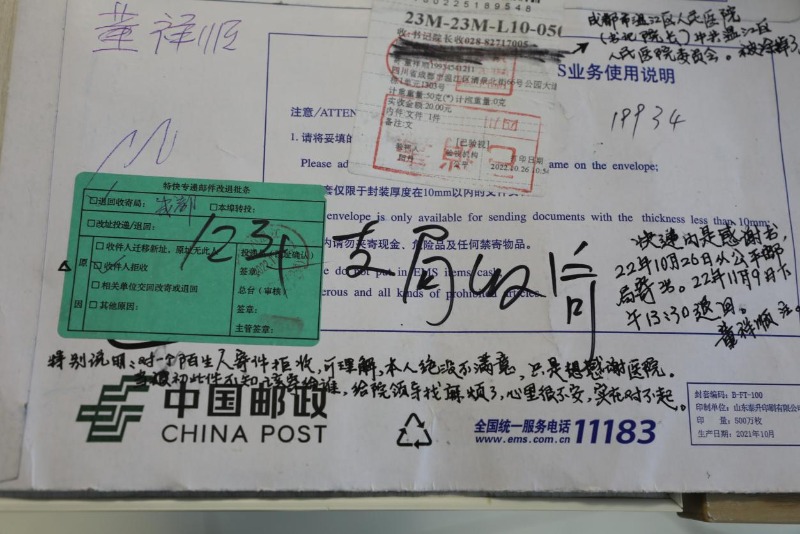 董祥顺
0225189548
23M-23M-L10-050
收:书记院长收028-82717005
成都市温江区人民医院
(书记院长)中共温江区
人民医院委员会。被涂掉了
四川省成都市温江区
计重重量:50克(*)计泡重量:0克
实收金额:20.00元
内件:文件 1件
备注:文
[已验视]
打印日期
2022.10.26
S业务使用说明
19934
注意/ATTEN
1. 请将妥填的
Please ad
ame on the envelope;
套仅限于封装厚度在10mm以内的文件
envelope is only available for sending documents with the thickness less than 10mm;
内请勿来寄现金、危险品及任何禁寄物品。
do not put in EMS items cash
erous and all kinds of prohibited articles.
特快专递邮件改退批条
□退回收寄局: 成都 □本埠转投:
□改址投递/退回:
□收件人迁移新址,原址无此人
□收件人拒收
□相关单位交回改寄或退回
□其他原因:
原因
签章:
总台(审核)
签章:
主管签章:
1234支局收后
快递内是感谢书,
22年10月26日从公平邮
局寄出。22年11月9日下
午13:30退回。
董祥顺
特别说明:对一个陌生人寄件拒收,可理解,本人绝没不满意,只是想感谢医院。
给院领导找麻烦了,心里很不安,实在对不起。
中国邮政
CHINA POST
全国统一服务电话
www.ems.com.cn
11183
封套编码:B-FT-100
印制单位:山东泰升印刷有限公
印 量:500万枚
生产日期:2021年10月